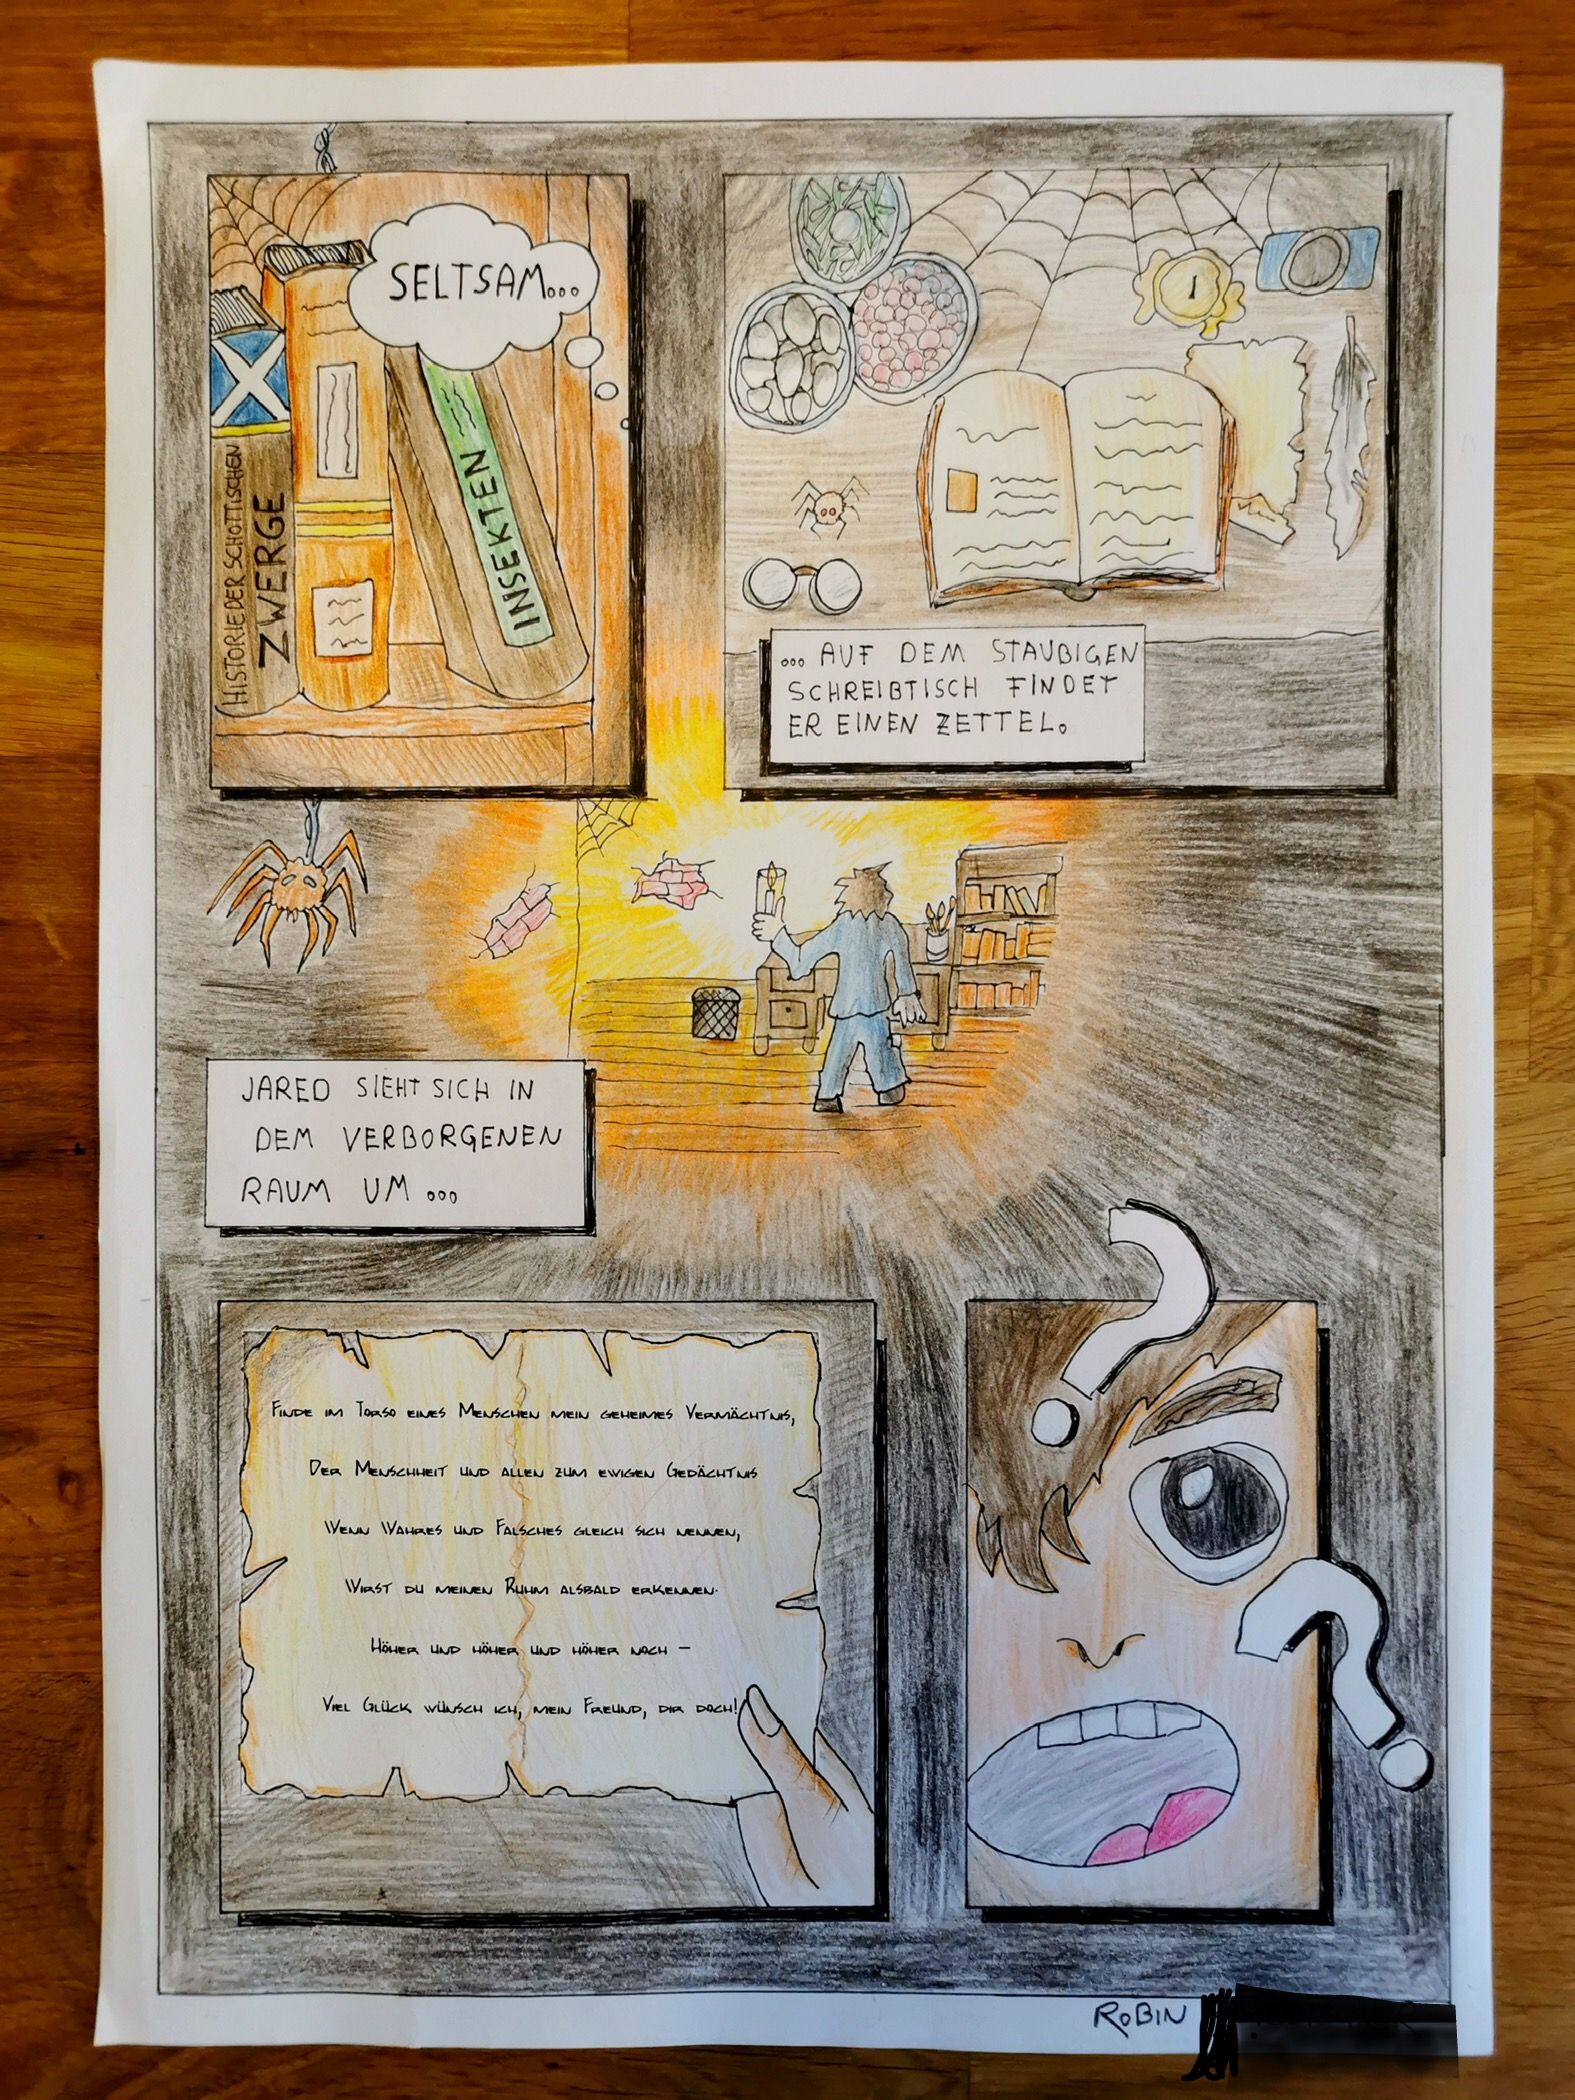 SELTSAM...
HISTORIE DER SCHOTTISCHEN
ZWERGE
INSEKTEN
... AUF DEM STAUBIGEN
SCHREIBTISCH FINDET
ER EINEN ZETTEL.
JARED SIEHT SICH IN
DEM VERBORGENEN
RAUM UM ...
Finde im Torso eines Menschen mein geheimes Vermächtnis,
Der Menschheit und allen zum ewigen Gedächtnis
Wenn Wahres und Falsches gleich sich nennen,
Wirst du meinen Ruhm alsbald erkennen.
Höher und höher und höher noch –
Viel Glück wünsch ich, mein Freund, dir doch!
?
?
ROBIN